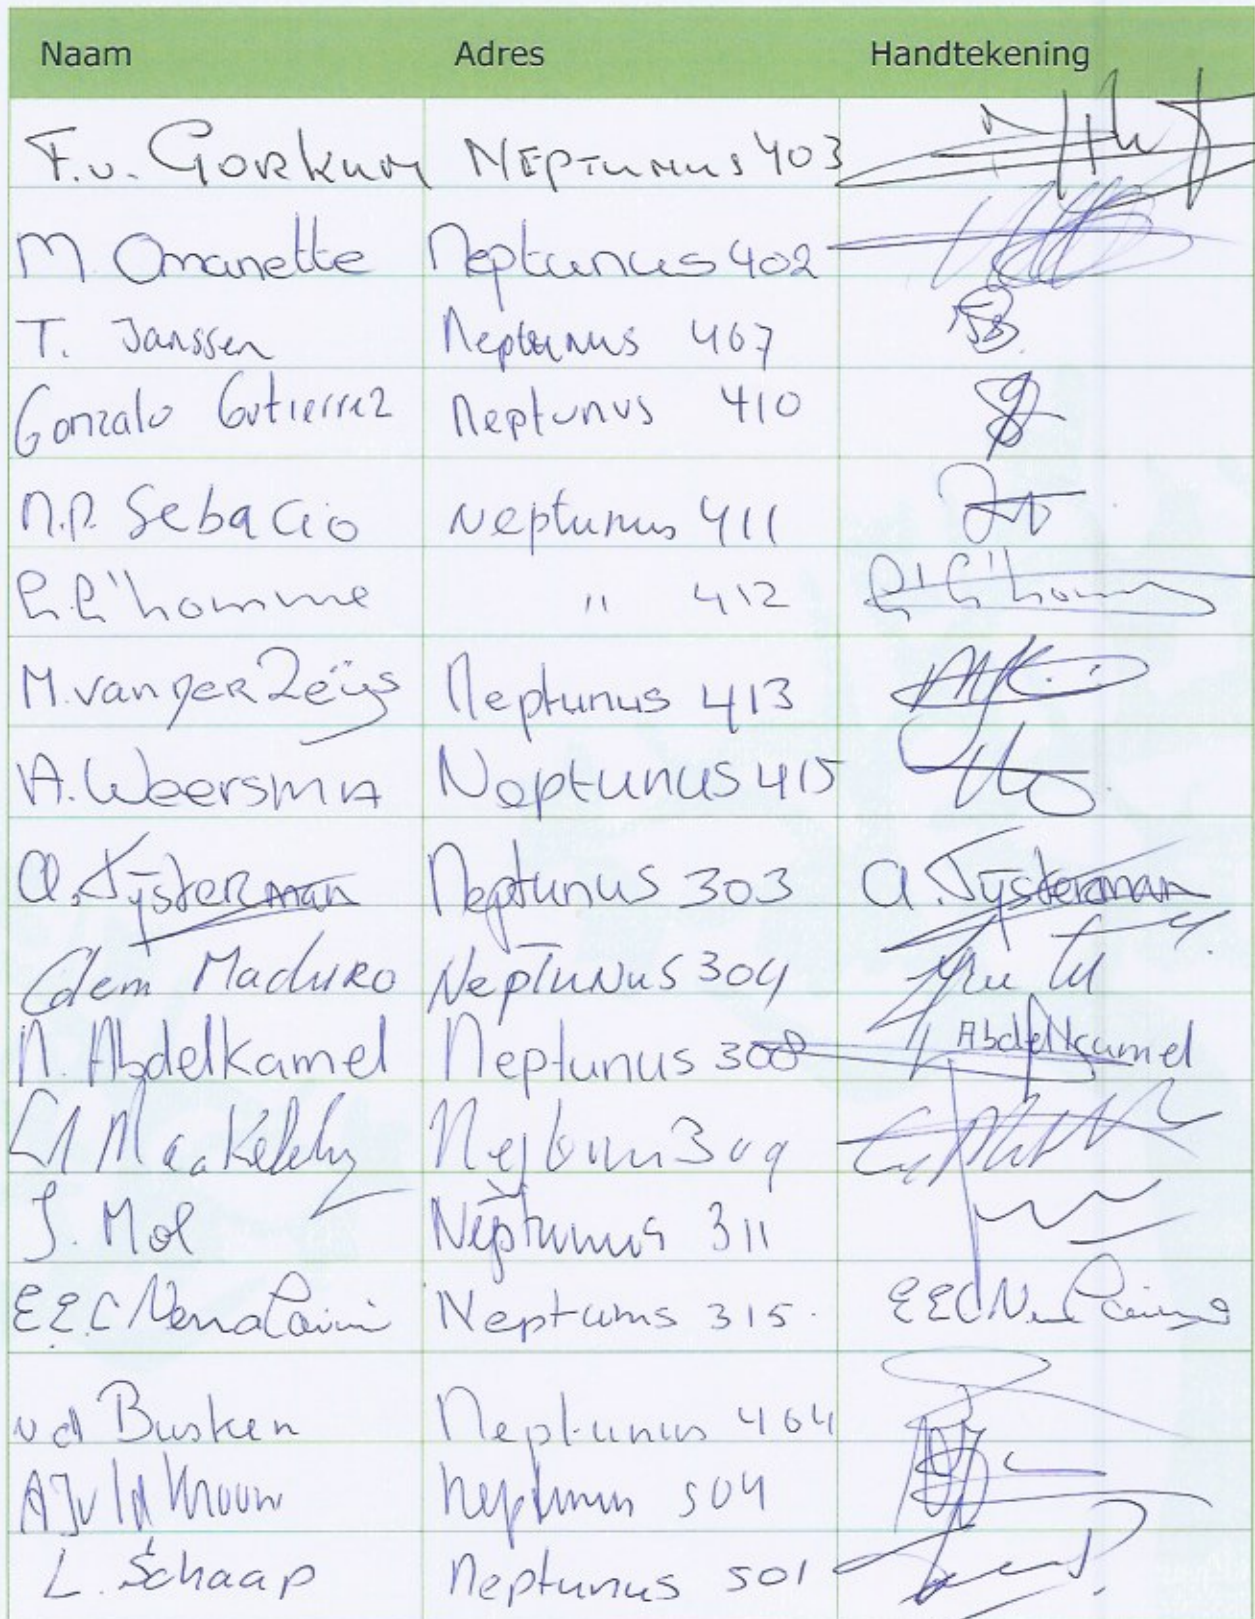 Naam Adres Handtekening
F.v. Gorkum Neptunus 403
M Omanette Neptunus 402
T. Janssen Neptunus 407
Gonzalo Gutierrez Neptunus 410
N.P. Sebacio Neptunus 411
L.L'homme " 412 L.L'homme
M. van der Zeijs Neptunus 413
A. Weersma Neptunus 415
A. Tijsterman Neptunus 303 A. Tijsterman
Clem Maduro Neptunus 304
N. Abdelkamel Neptunus 308 Abdelkamel
309
J. Mol Neptunus 311
E.E.C Neptunus 315. EEC
vd Busken Neptunus 404
Neptunus 504
L. Schaap Neptunus 501